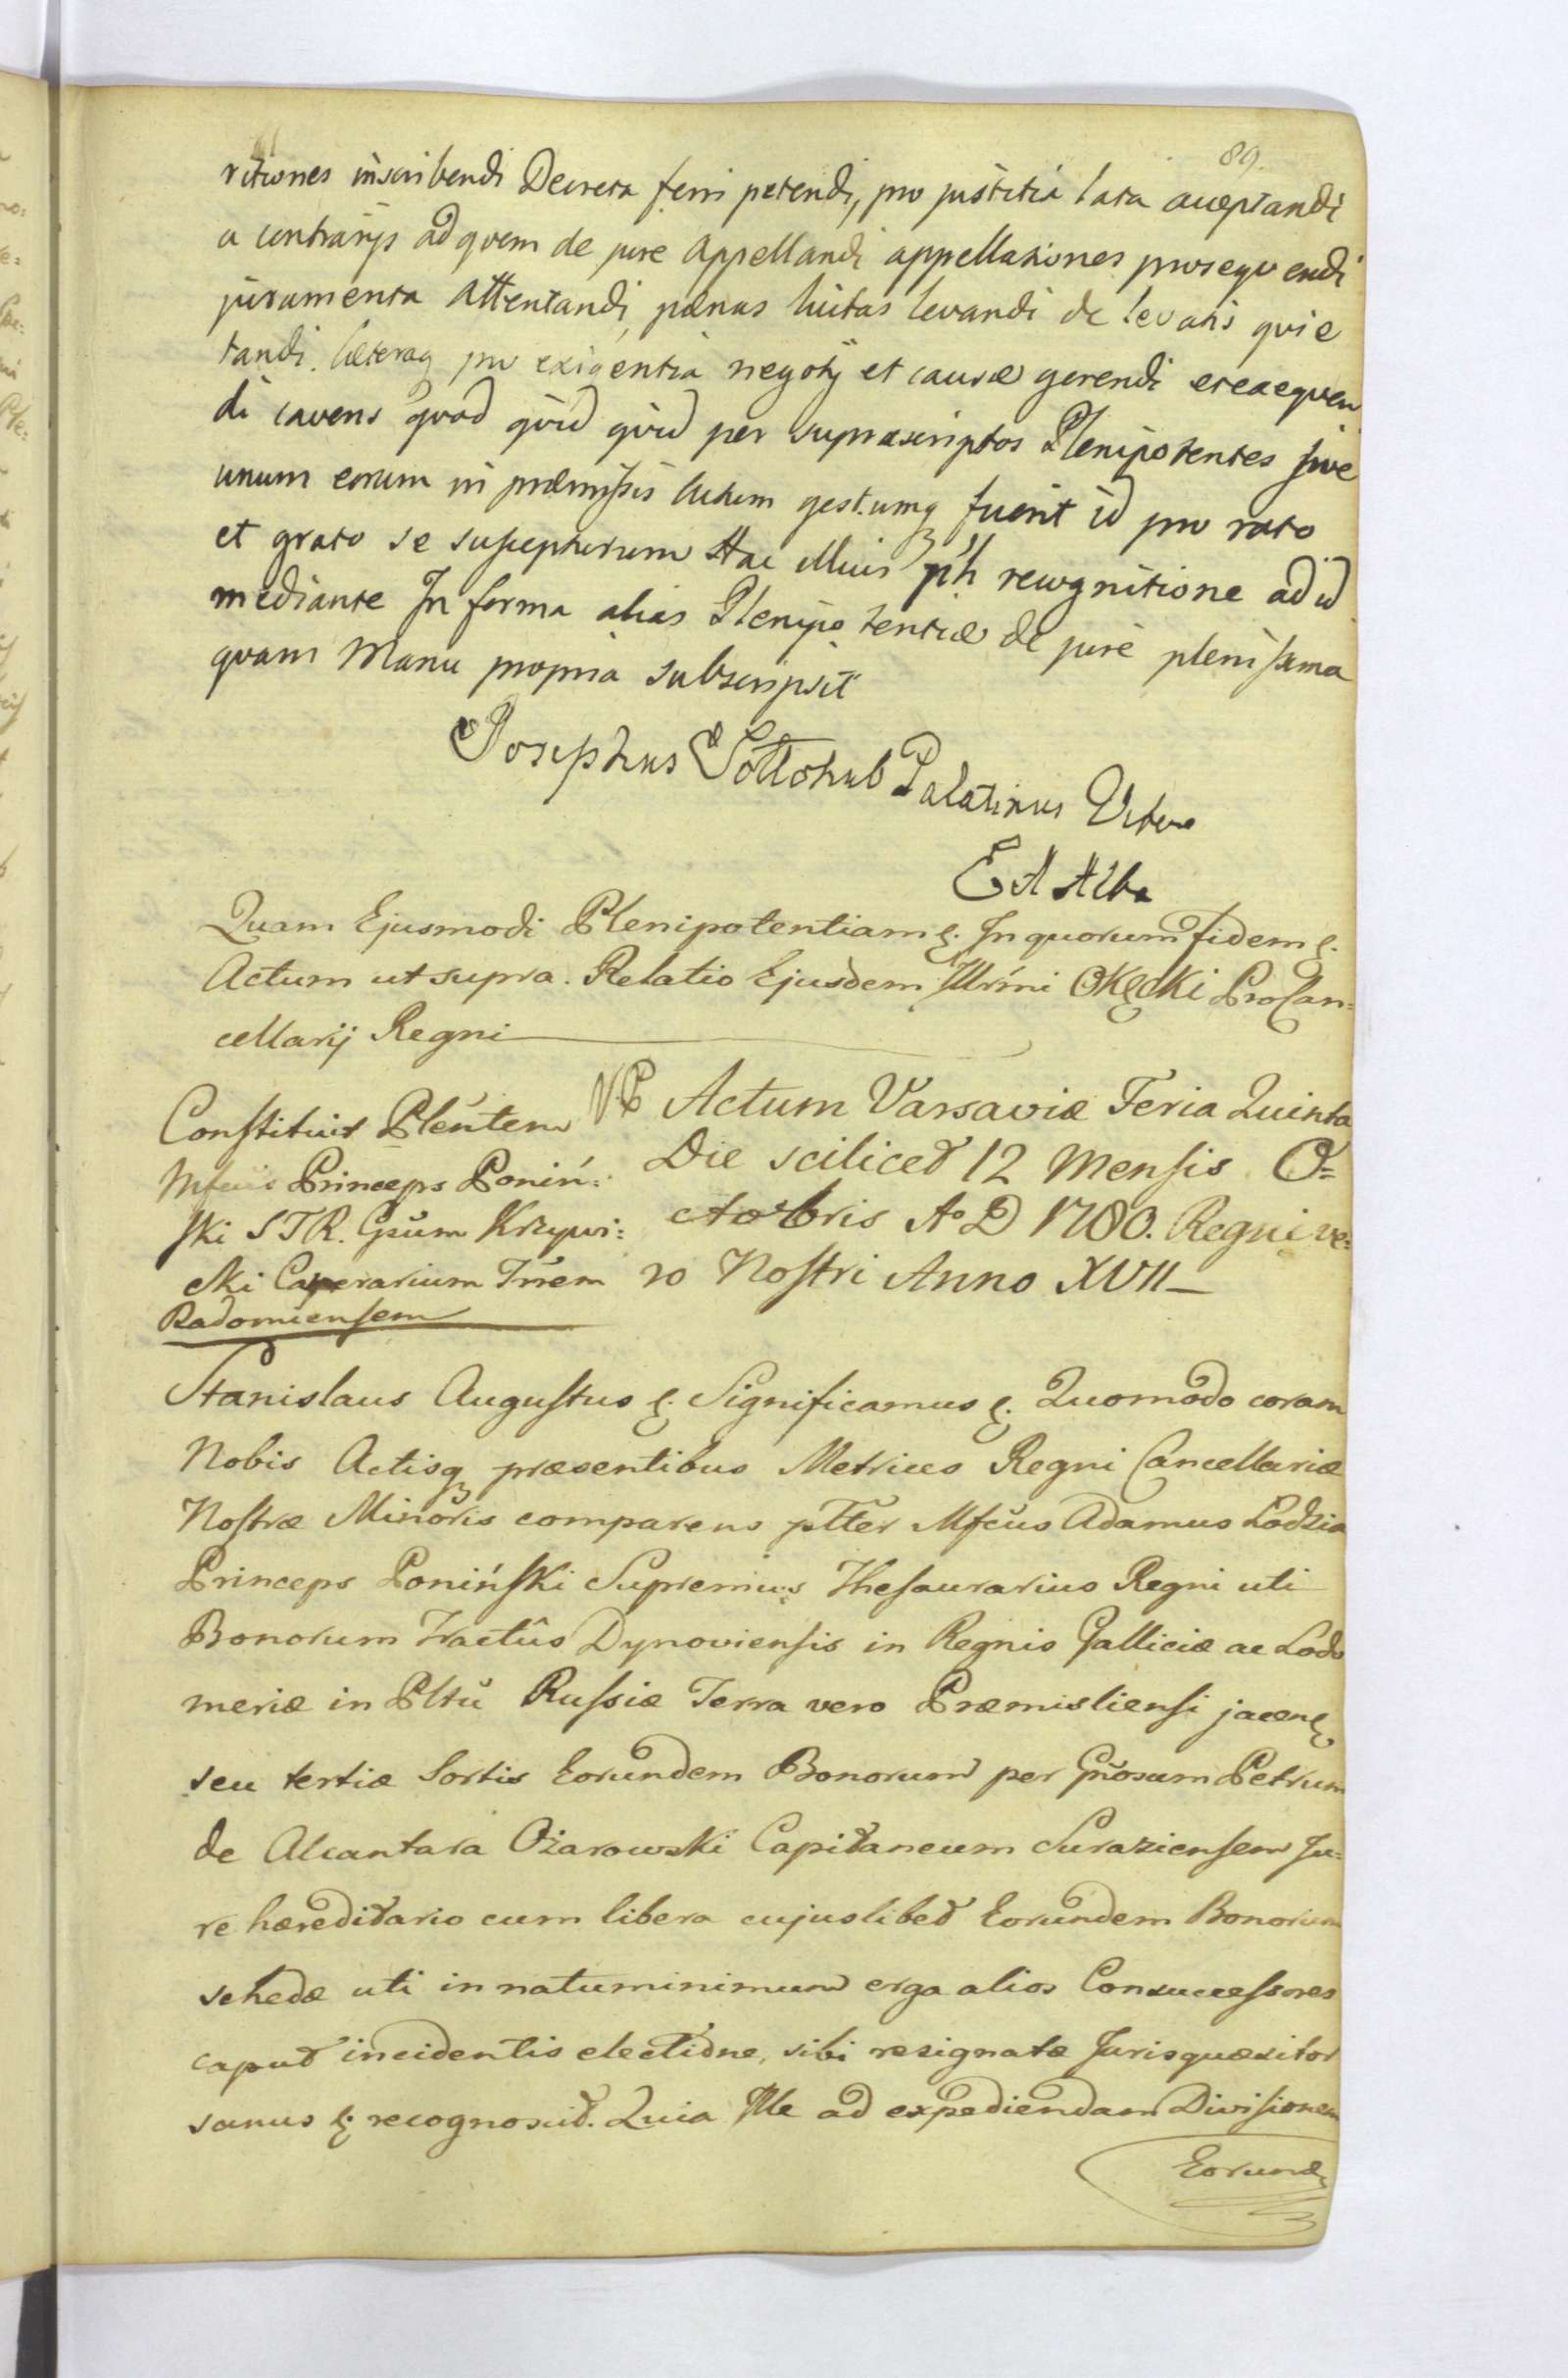 89.
ritiones inscribendi Decreta ferri petendi, pro justitia lata acceptandi
a contrarijs ad quem de jure appellandi appellationes prosequendi
juramenta attentandi, pænas luitas levandi de levatis quie
tandi. Cæteraq pro exigentia negotij et causæ gerendi et exequen
di cavens quod quid quid per suprascriptos Plenipotentes sive
unum eorum in præmissis actum gestumq fuerit id pro rato
et grato se suscepturum Hac recognitione ad id
mediante In forma alias Plenipotentiæ de jure plenissima
quam Manu propria subscripsit
Josephus Sołłohub Palatinus Viteb
Quam Ejusmodi Plenipotentiam &. In quorum fidem &.
Actum ut supra. Relatio Ejusdem Illrmi Okęcki ProCan=
cellarij Regni
Constituit Pléntem
Mfcus Princeps Poniń:
ski STR. Gsum Krzywi:
cki Camerarium Trrem
Radomiensem
Actum Varsaviæ Feria Quinta
Die scilicet 12 Mensis O=
ctobris Ao D 1780. Regni ve=
ro Nostri Anno XVII
Stanislaus Augustus &. Significamus &. Quomodo coram
Nobis Actisq præsentibus Metrices Regni Cancellariæ
Nostræ Minoris comparens pltter Mfcus Adamus Lodzia
Princeps Poniński Supremus Thesaurarius Regni uti
Bonorum Tractûs Dynoviensis in Regnis Galliciæ ac Lodo
meriæ in Pltũ Russiæ Terra vero Præmisliensi jacen
seu tertiæ Sortis Eorundem Bonorum per Gnosum Petrum
de Alcantara Ożarowski Capitaneum Suraziensem Ju=
re hæreditario cum libera cujuslibet Eorundem Bonorum
schedæ uti in natuminimum erga alios Consuccessores
caput incidentis electione, sibi resignatæ Jurisquæsitor
sanus &. recognoscit. Quia Ille ad expediendam Divisionem
Eorund